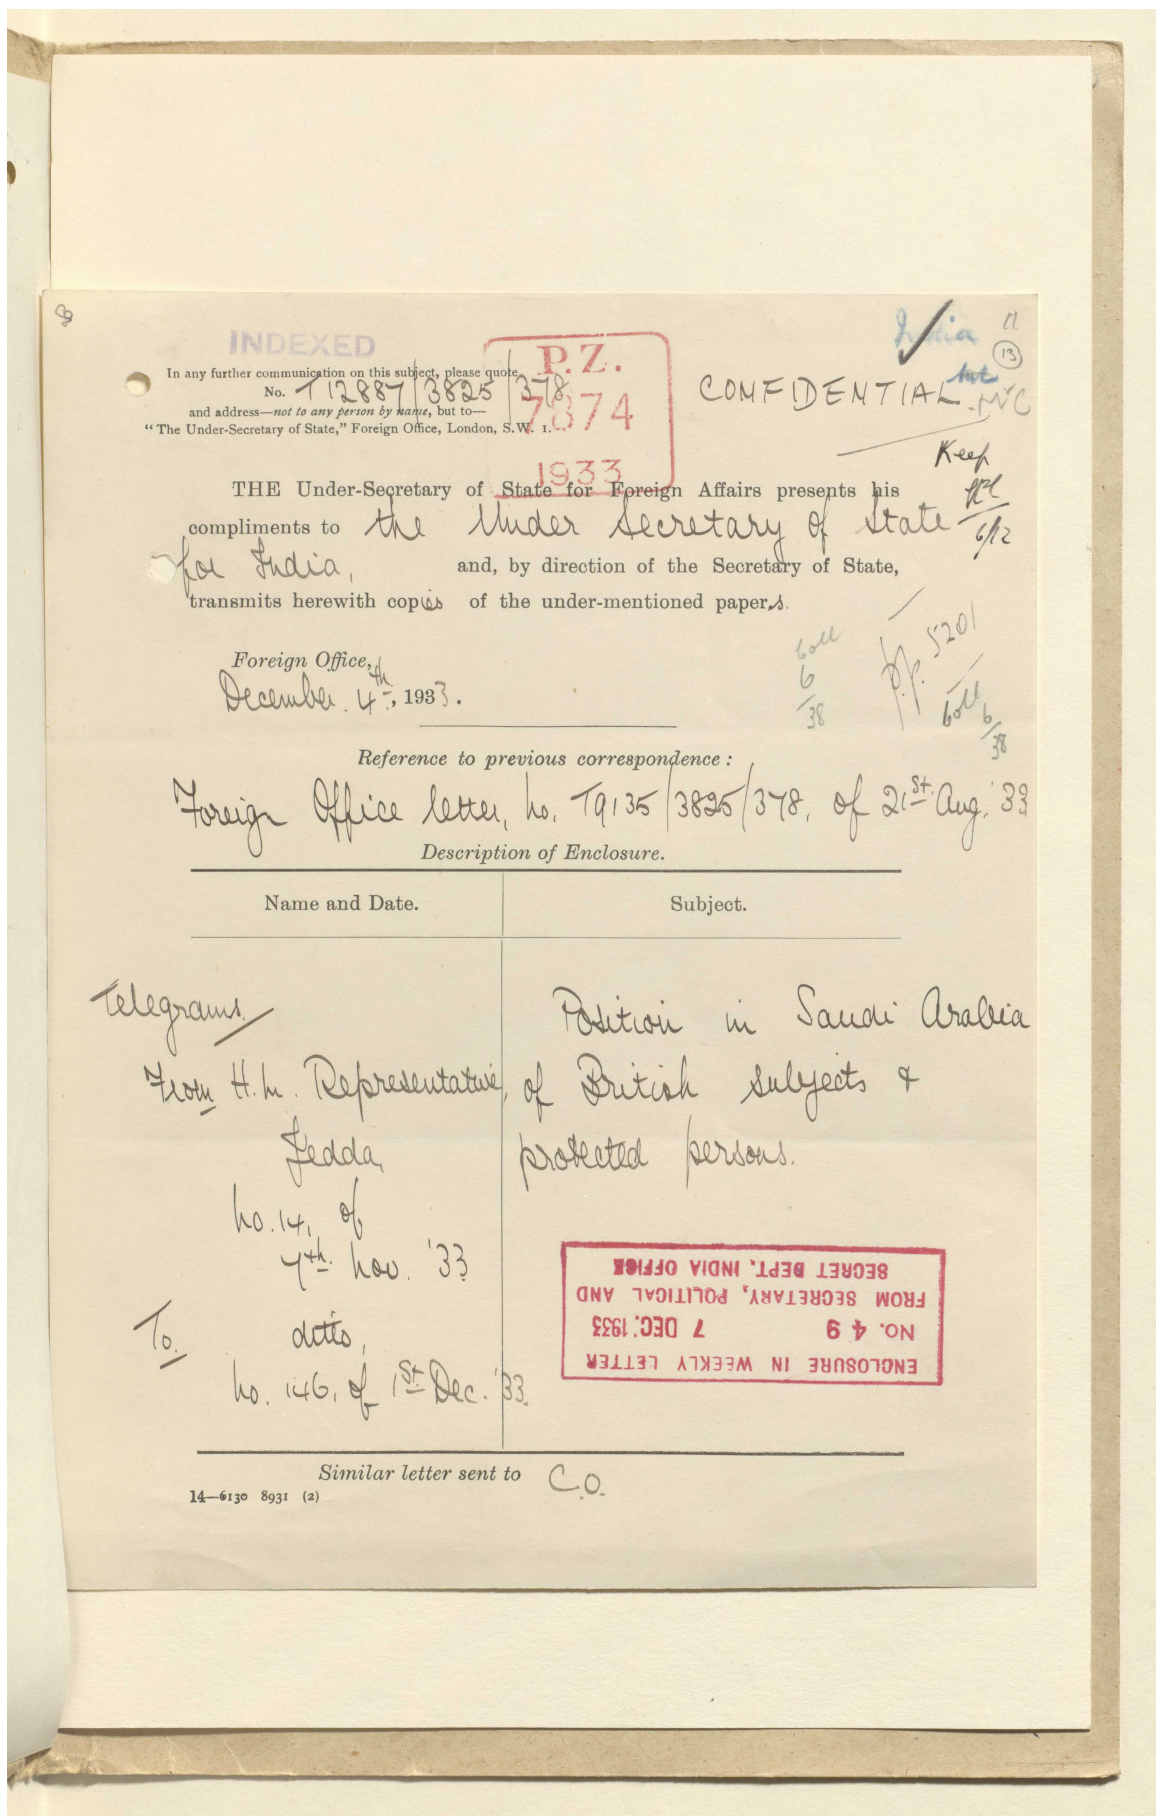 INDEXED
India
11
13
In any further communication on this subject, please quote
No. T12887/3825/378
and address—not to any person by name, but to—
"The Under-Secretary of State," Foreign Office, London, S.W. 1.
P.Z.
7874
1933
CONFIDENTIAL.
Keep
6/12
THE Under-Secretary of State for Foreign Affairs presents his
compliments to the Under Secretary of State
for India, and, by direction of the Secretary of State,
transmits herewith copies of the under-mentioned papers.
Foreign Office,
December 4th, 1933.
p.p. 5201
Coll
6
38
Coll
6/38
Reference to previous correspondence :
Foreign Office letter, no. T9135/3825/378, of 21st Aug. '33
Description of Enclosure.
Name and Date.
Subject.
Telegrams.
From H.M. Representative,
Jedda,
no. 14, of
7th Nov. '33
To ditto,
no. 146, of 1st Dec. '33.
Position in Saudi Arabia
of British subjects &
protected persons.
ENCLOSURE IN WEEKLY LETTER
NO. 49 7 DEC. 1933
FROM SECRETARY, POLITICAL AND
SECRET DEPT. INDIA OFFICE
Similar letter sent to C.O.
14—6130 8931 (2)